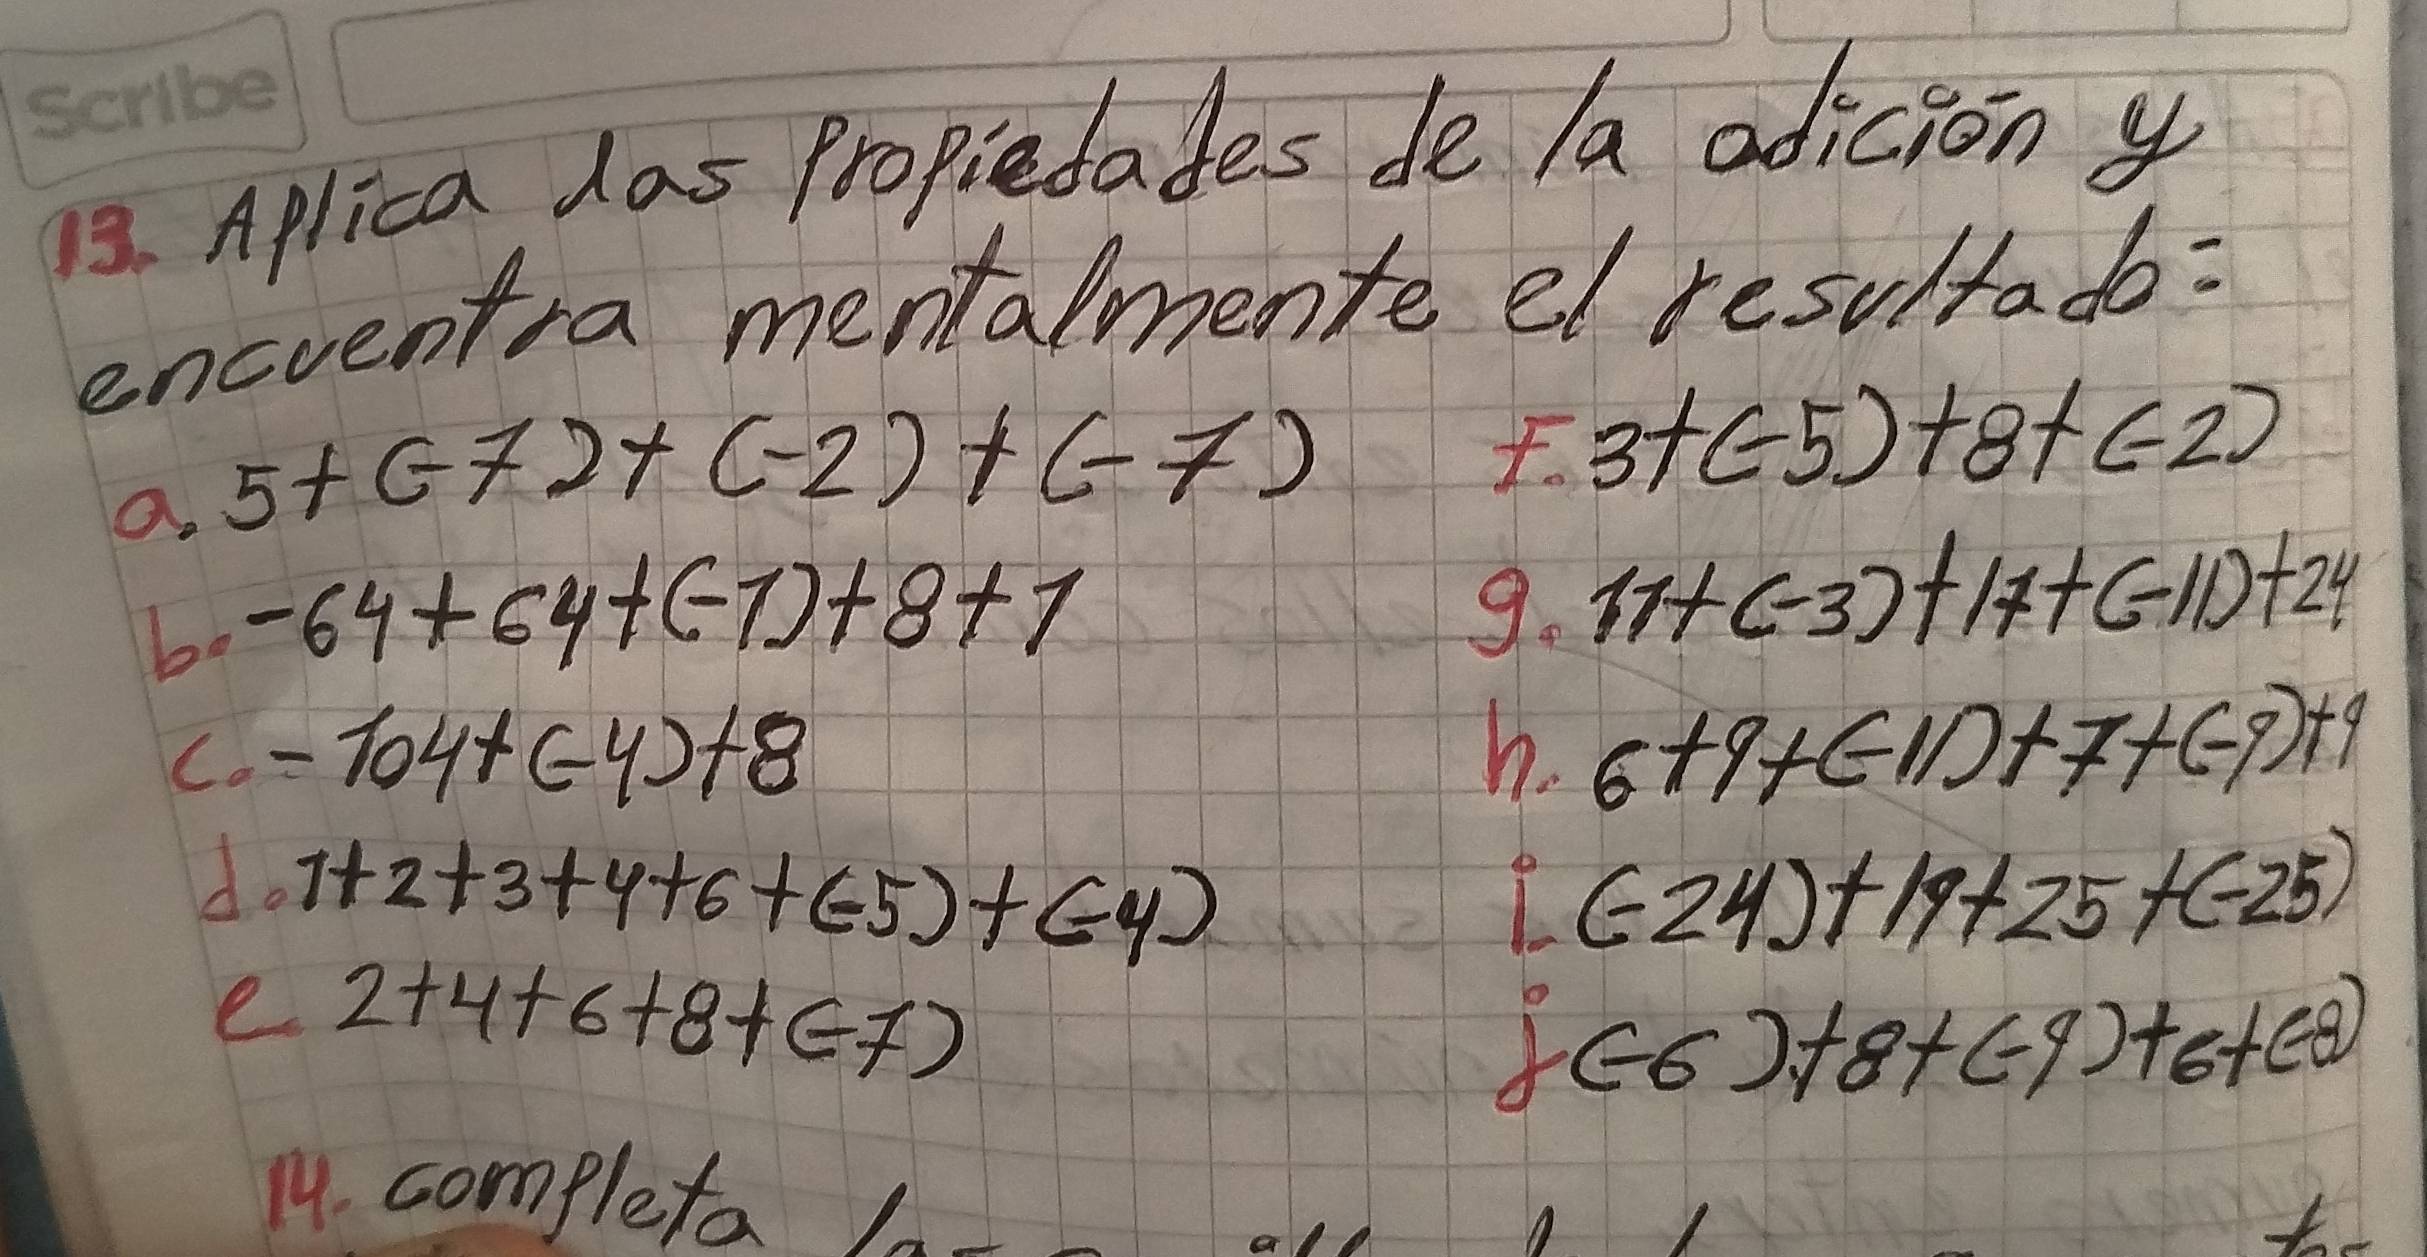 Scribe
13. Aplica las propiedades de la adición y
encuentra mentalmente el resultado:
a. 5+(-7)+(-2)+(-7)
f. 3+(-5)+8+(-2)
b. -64+64+(-1)+8+1
g. 11+(-3)+17+(-11)+24
c. -104+(-4)+8
h. 6+9+(-11)+7+(-9)+9
d. 1+2+3+4+6+(-5)+(-4)
i. (-24)+19+25+(-25)
e. 2+4+6+8+(-7)
j (-6)+8+(-9)+6+(-8)
14. completa